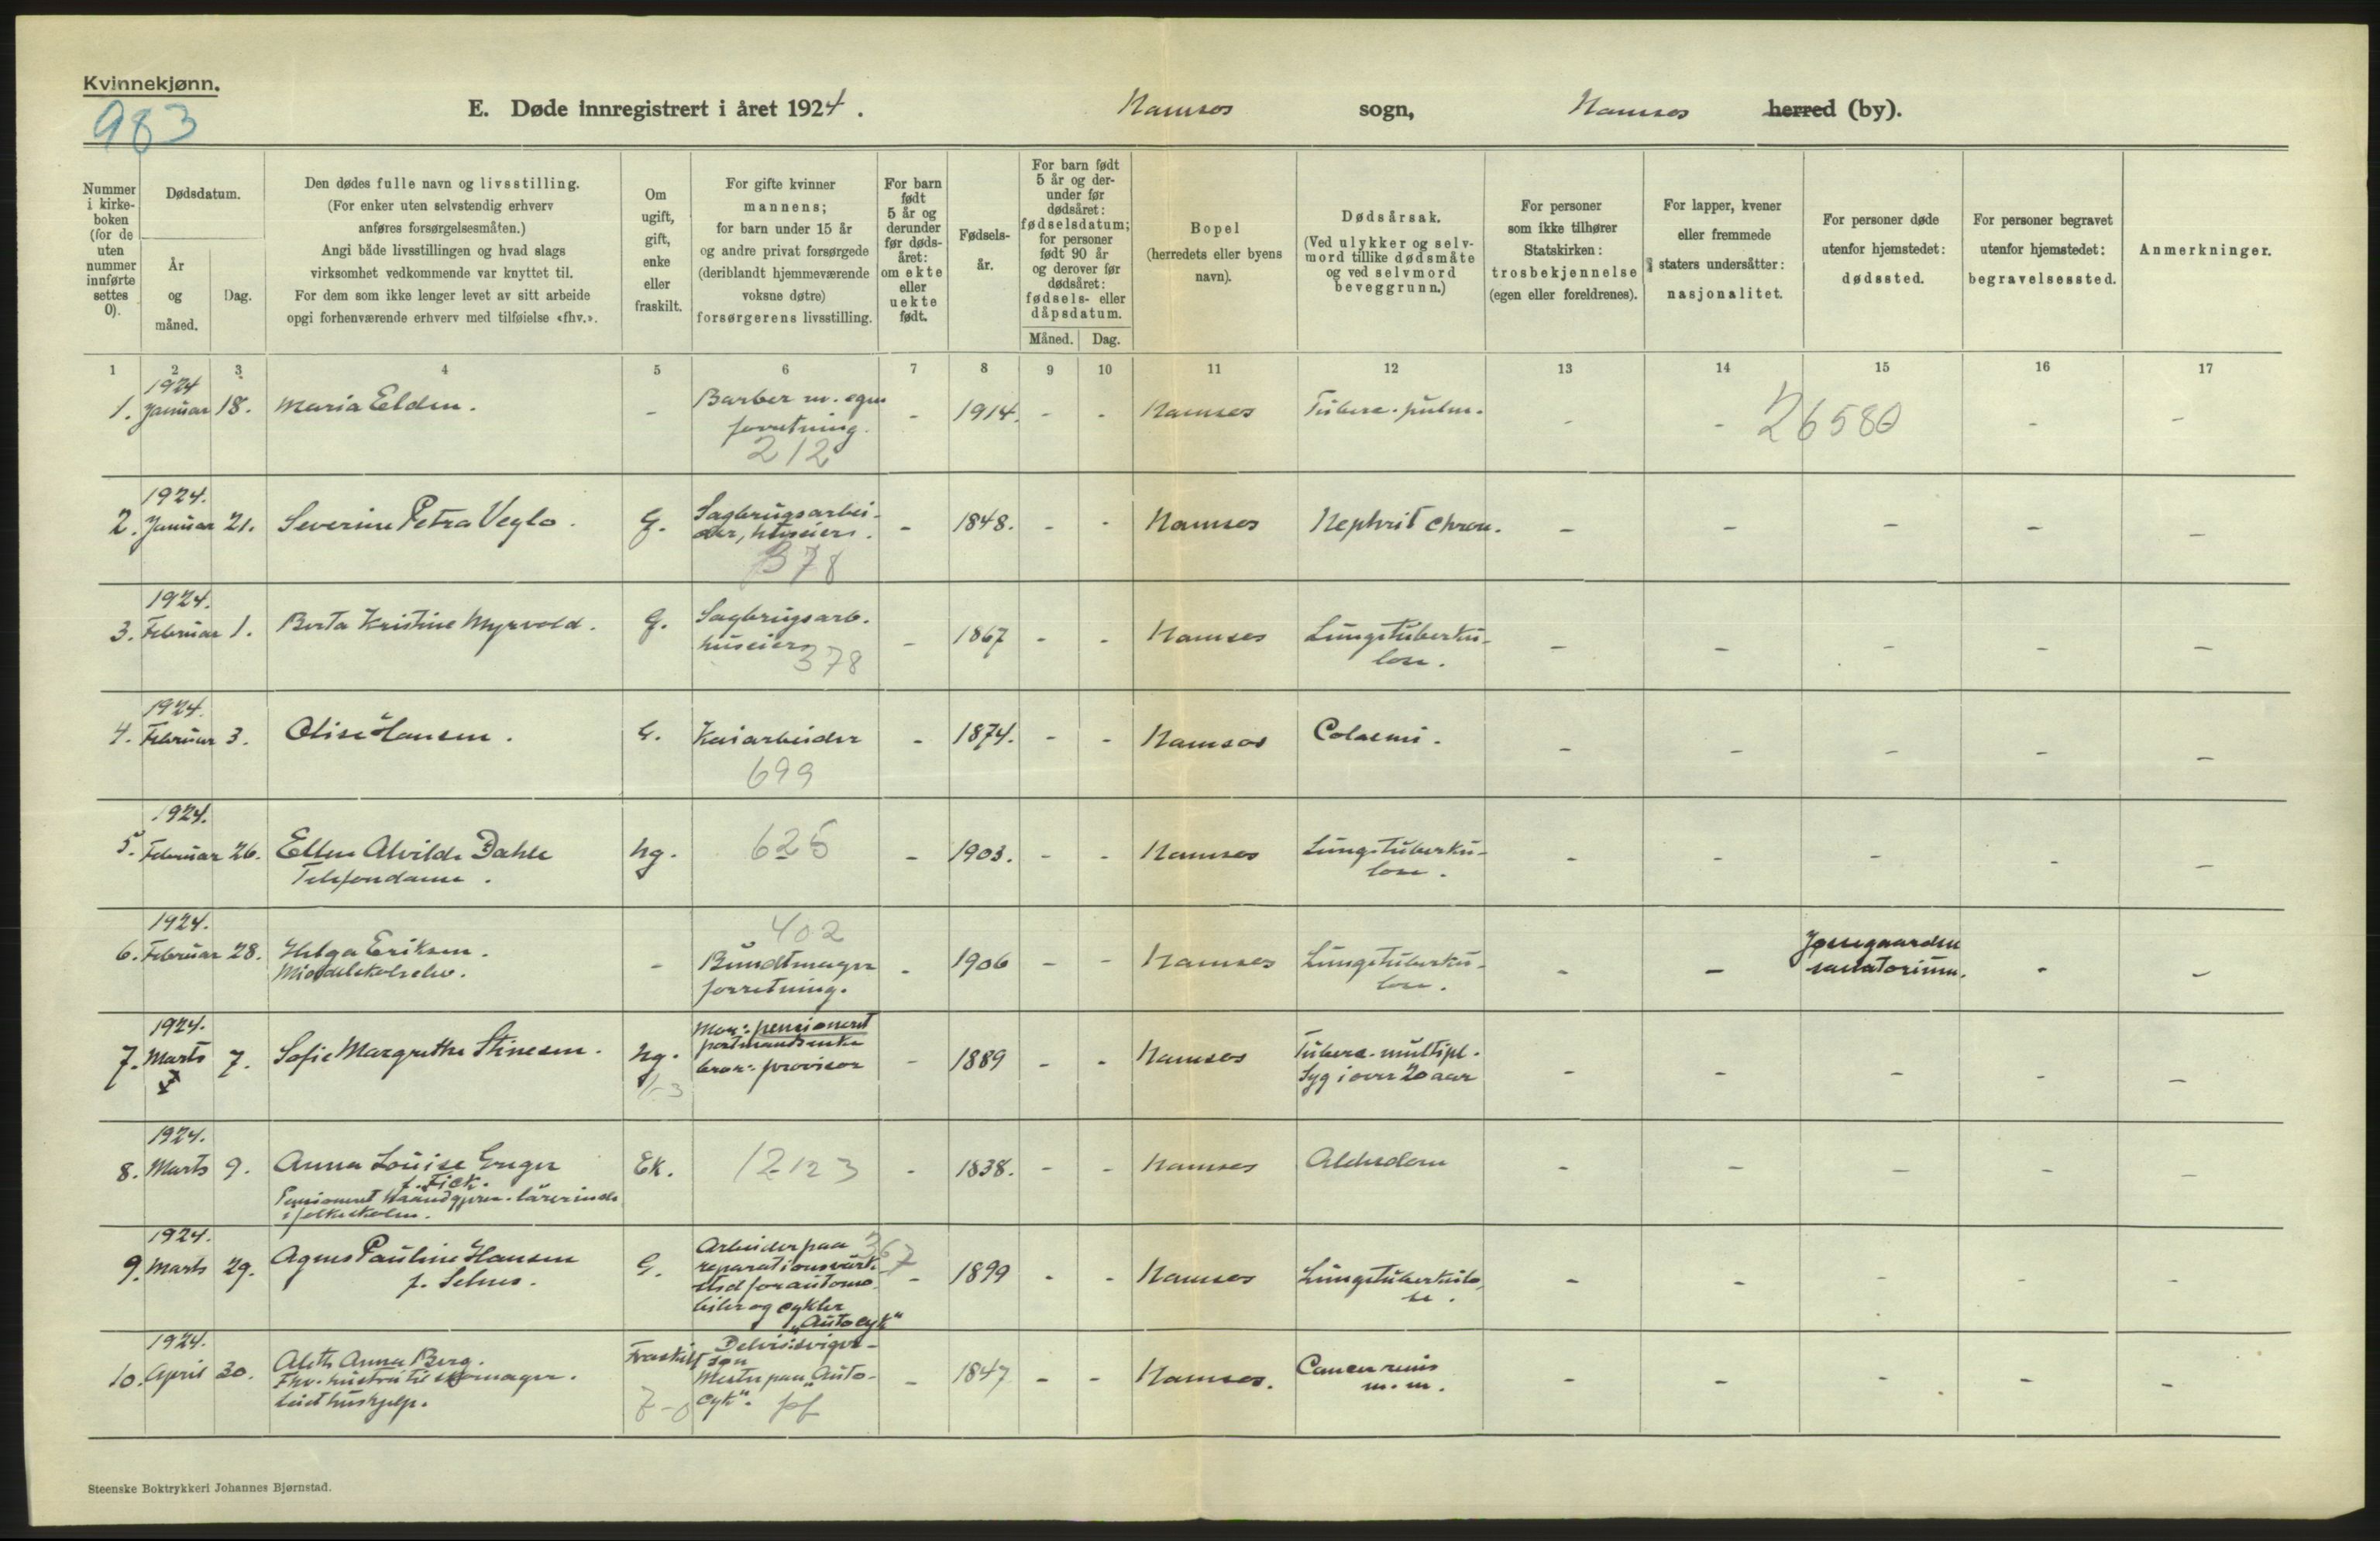 Kvinnekjønn.
983
E. Døde innregistrert i året 1924. Namsos sogn, Namsos herred (by).
Nummer i kirke-boken (for de uten nummer innførte settes 0).
Dødsdatum.
År og måned.
Dag.
Den dødes fulle navn og livsstilling.
(For enker uten selvstendig erhverv
anføres forsørgelsesmåten.)
Angi både livsstillingen og hvad slags
virksomhet vedkommende var knyttet til.
For dem som ikke lenger levet av sitt arbeide
opgi forhenværende erhverv med tilføielse «fhv.».
Om
ugift,
gift,
enke
eller
fraskilt.
For gifte kvinner
mannens;
for barn under 15 år
og andre privat forsørgede
(deriblandt hjemmeværende
voksne døtre)
forsørgerens livsstilling.
For barn
født
5 år og
derunder
før døds-
året:
om ekte
eller
uekte
født.
Fødsels-
år.
For barn født
5 år og der-
under før
dødsåret:
fødselsdatum;
for personer
født 90 år
og derover før
dødsåret:
fødsels- eller
dåpsdatum.
Måned. Dag.
Bopel
(herredets eller byens
navn).
Dødsårsak.
(Ved ulykker og selv-
mord tillike dødsmåte
og ved selvmord
beveggrunn.)
For personer
som ikke tilhører
Statskirken:
trosbekjennelse
(egen eller foreldrenes).
For lapper, kvener
eller fremmede
staters undersåtter:
nasjonalitet.
For personer døde
utenfor hjemstedet:
dødssted.
For personer begravet
utenfor hjemstedet:
begravelsessted.
Anmerkninger.
1 2 3 4 5 6 7 8 9 10 11 12 13 14 15 16 17
1924
1. Januar 18. Maria Elden. - Barber m. egen - 1914. - - Namsos Tuberc. pulm. - - 26580 - -
forretning.
212
1924.
2. Januar 21. Severine Petra Veglo. G. Sagbrugsarbei- - 1848. - - Namsos Nephrit chron. - - - - -
der, huseier.
378
1924.
3. Februar 1. Berta Kristine Myrvold. G. Sagbrugsarb. - 1867 - - Namsos Lungetuberku- - - - - -
huseier lose.
378
1924.
4. Februar 3. Olise Hansen. G. Kaiarbeider - 1874. - - Namsos - - - - -
699
1924.
5. Februar 26. Ellen Alvilde Dahle ug. 625 - 1903. - - Namsos Lungetuberku- - - - - -
Telefondame. lose.
1924. 402
6. Februar 28. Helga Eriksen. - Bundtmager - 1906 - - Namsos Lungetuberku- - - -  -
Middelskoleelev. forretning. lose. sanatorium.
1924. Mor: pensioneret
7. Marts 7. Sofie Margrethe Stinesen. ug. bror: provisor - 1889 - - Namsos Tuberc. multipl. - - - - -
Syg i over 20 aar
1924.
8. Marts 9. Anna Louise Enger Ek. - 1838. - - Namsos Alderdom - - - - -
f. Fick.
Pensioneret Haandgjern. lärerinde
i folkeskolen.
1924. Arbeider paa 367
9. Marts 29. Agnes Pauline Hansen G. reparationsverk- - 1899 - - Namsos Lungetuberkulo- - - - - -
f. Selnes. sted for automo- se.
biler og cykler
"Autocyk"
1924. Delvis: sviger-
10. April 30. Aleth Anna Berg. Fraskilt søn - 1847 - - Namsos. Cancer renis - - - - -
Fhv. hustru til skomager. Mester paa "Auto- m.m.
leiet hushjelp. cyk".
Steenske Boktrykkeri Johannes Bjørnstad.